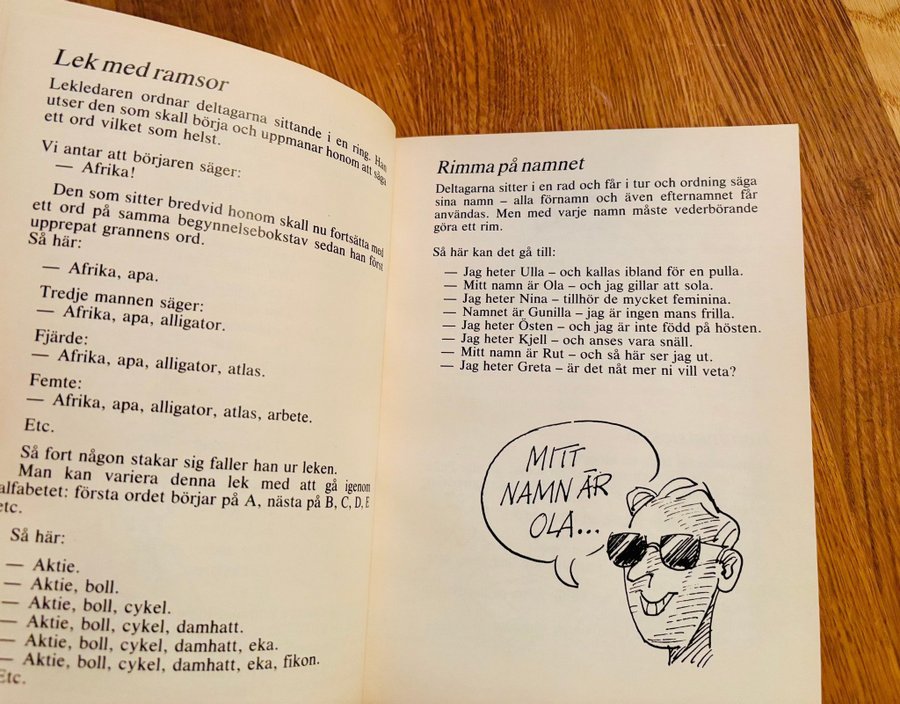 Lek med ramsor
Lekledaren ordnar deltagarna sittande i en ring. Han
utser den som skall börja och uppmanar honom att säga
ett ord vilket som helst.
Vi antar att börjaren säger:
— Afrika!
Den som sitter bredvid honom skall nu fortsätta med
ett ord på samma begynnelsebokstav sedan han först
upprepat grannens ord.
Så här:
— Afrika, apa.
Tredje mannen säger:
— Afrika, apa, alligator.
Fjärde:
— Afrika, apa, alligator, atlas.
Femte:
— Afrika, apa, alligator, atlas, arbete.
Etc.
Så fort någon stakar sig faller han ur leken.
Man kan variera denna lek med att gå igenom
alfabetet: första ordet börjar på A, nästa på B, C, D, E
etc.
Så här:
— Aktie.
— Aktie, boll.
— Aktie, boll, cykel.
— Aktie, boll, cykel, damhatt.
— Aktie, boll, cykel, damhatt, eka.
— Aktie, boll, cykel, damhatt, eka, fikon.
Etc.
Rimma på namnet
Deltagarna sitter i en rad och får i tur och ordning säga
sina namn – alla förnamn och även efternamnet får
användas. Men med varje namn måste vederbörande
göra ett rim.
Så här kan det gå till:
— Jag heter Ulla – och kallas ibland för en pulla.
— Mitt namn är Ola – och jag gillar att sola.
— Jag heter Nina – tillhör de mycket feminina.
— Namnet är Gunilla – jag är ingen mans frilla.
— Jag heter Östen – och jag är inte född på hösten.
— Jag heter Kjell – och anses vara snäll.
— Mitt namn är Rut – och så här ser jag ut.
— Jag heter Greta – är det nåt mer ni vill veta?
MITT
NAMN ÄR
OLA...